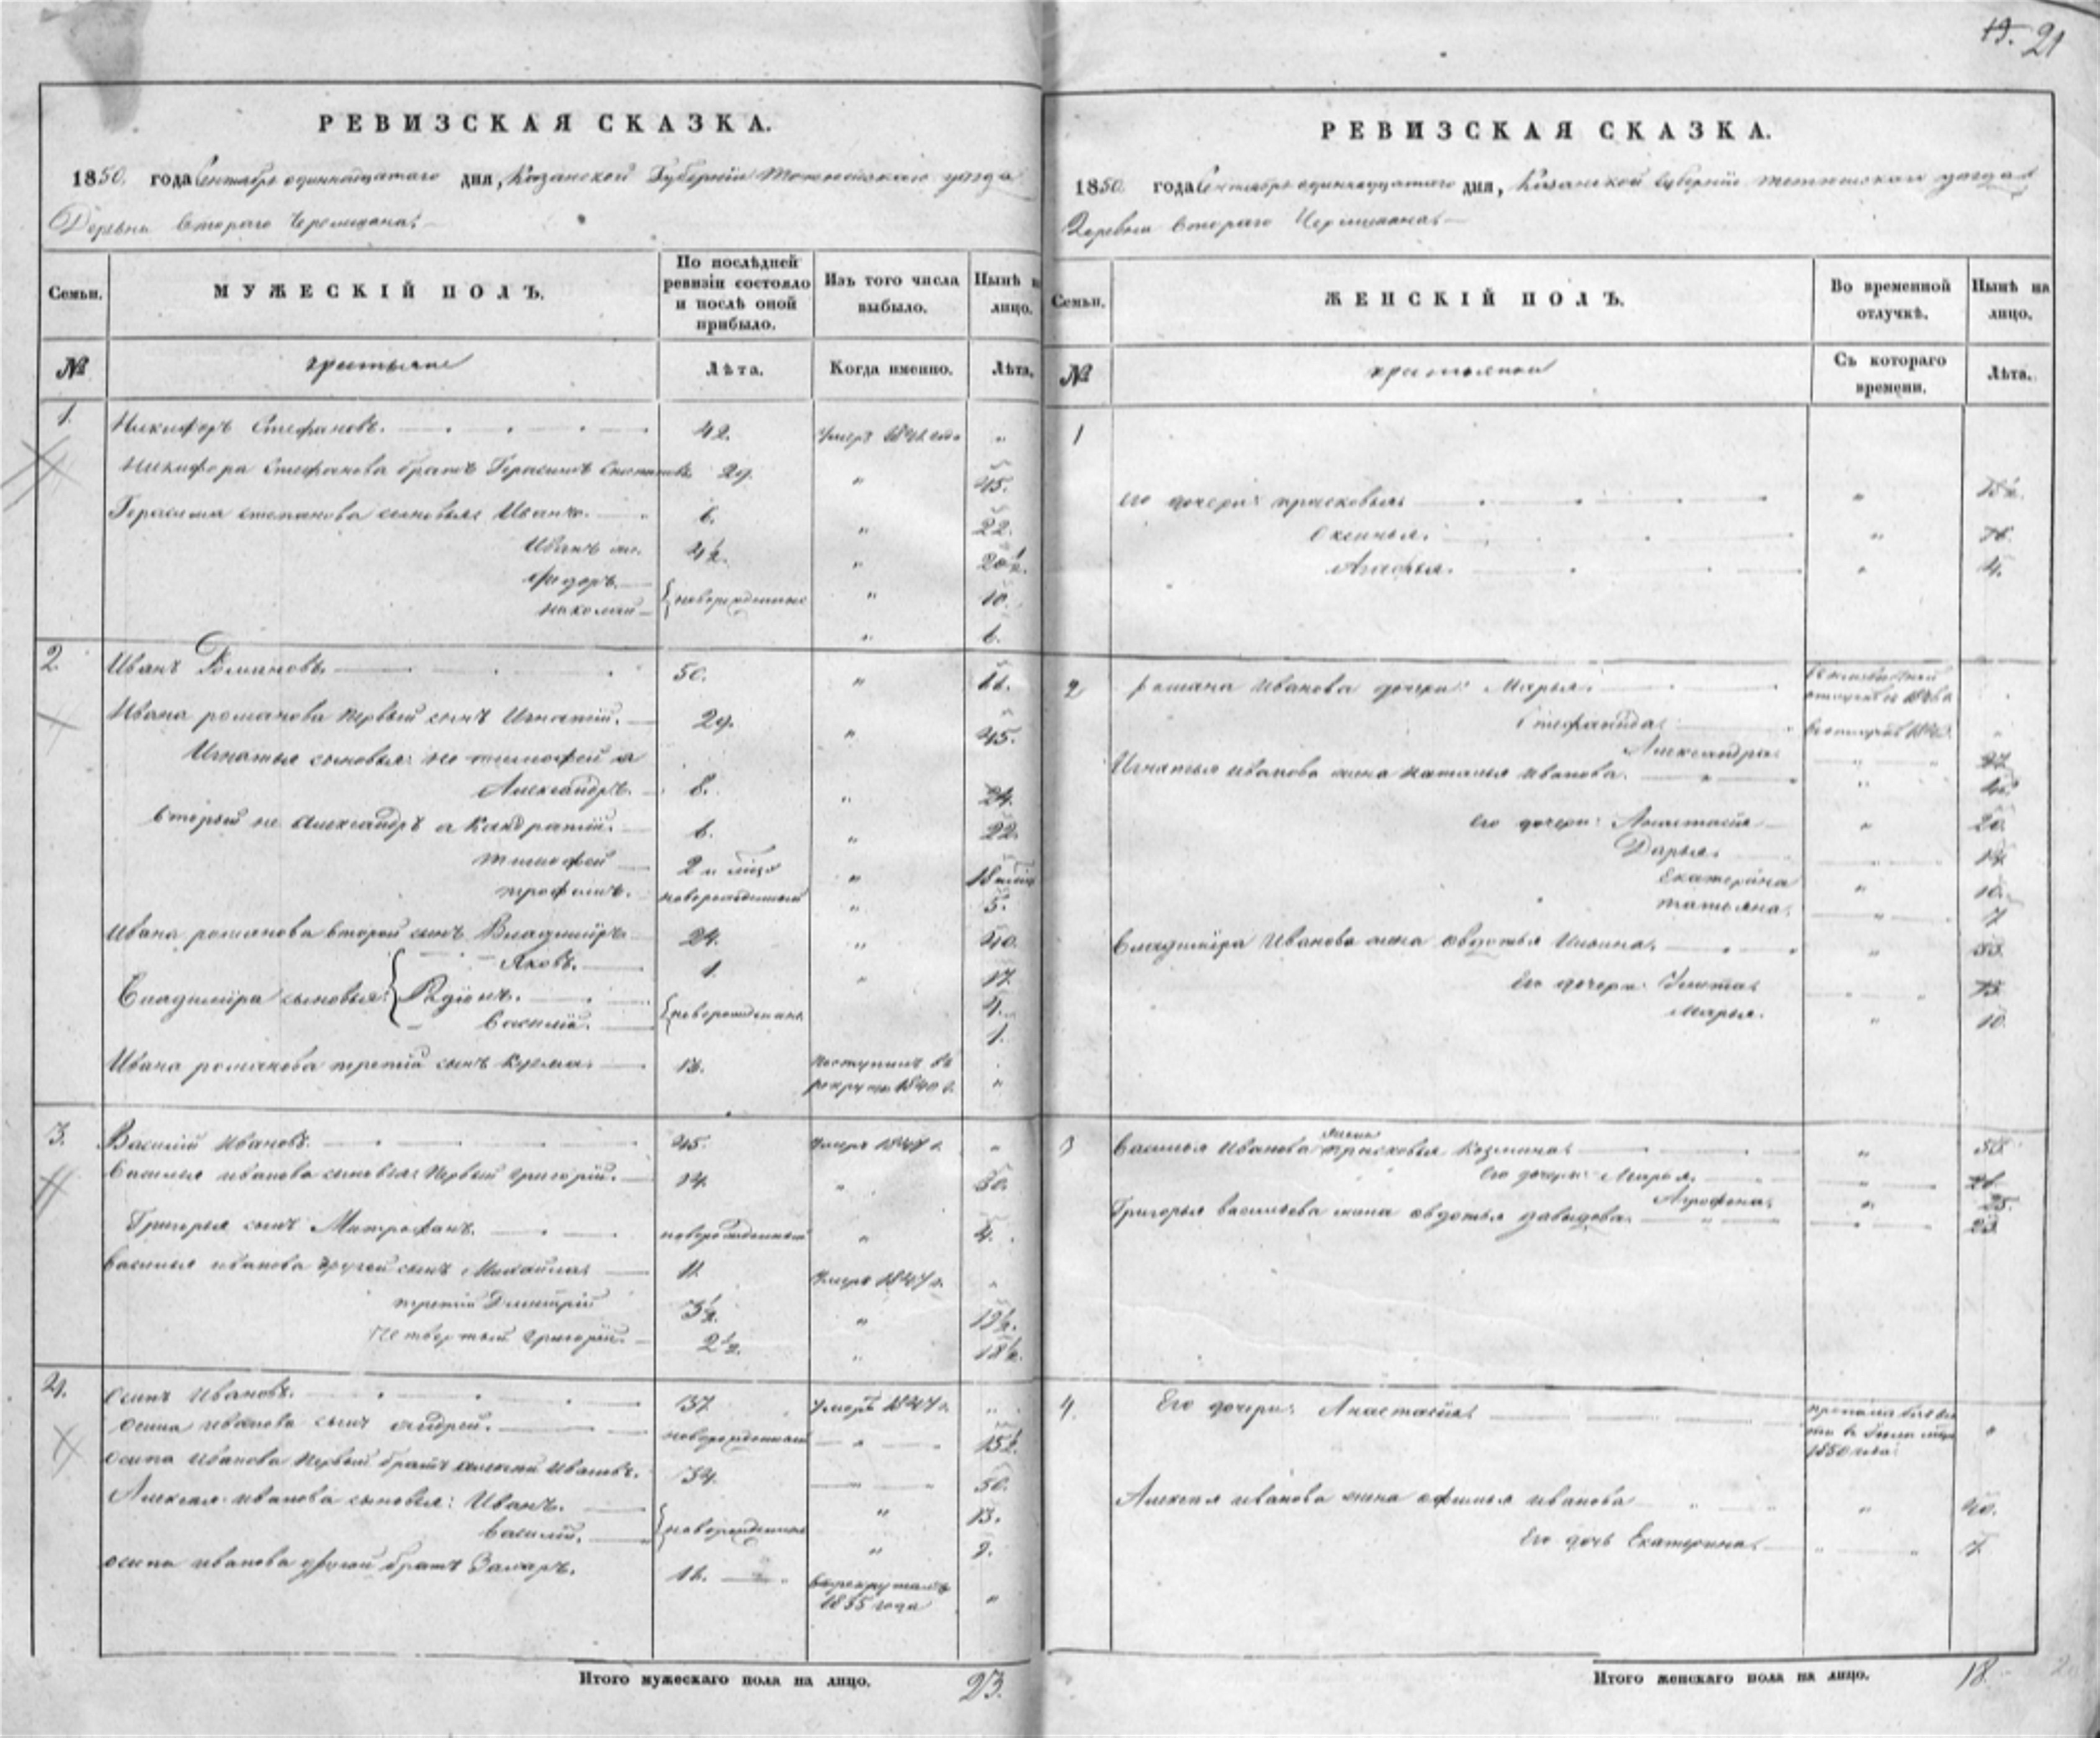 19. 21
РЕВИЗСКАЯ СКАЗКА.
1850. года Сентября одиннадцатаго дня, Казанской Губернiи Тетюшскаго уезда
Деревни Втораго Черемшана
Семьи.
МУЖЕСКІЙ ПОЛЪ.
По послѣдней ревизіи состояло и послѣ оной прибыло.
Изъ того числа выбыло.
Нынѣ на лицо.
№
крестьяне
Лѣта.
Когда именно.
Лѣта.
1.
Никифоръ Стефановъ. 42. умеръ 1841 года "
Никифора Стефанова братъ Герасимъ Степановъ 29. " 45.
Герасима степанова сыновья: Иванъ. 6. " 22.
Иванъ 4½. " 20½.
Фидоръ. новорожденные " 10.
Николай " 6.
2.
Иванъ Романовъ. 50. " 66.
Ивана романова первый сынъ Игнатiй. 29. " 45.
Игнатья сыновья: не тимофей а
Александръ. 8. " 24.
вторый не Александръ а Кандратiй. 6. " 22.
тимофей 2 " 18
трофимъ. новорожденный " 5.
Ивана романова второй сынъ Владимiръ. 24. " 40.
Яковъ. 1. " 17.
Владимiра сыновья: Радiонъ. новорожденные 4.
Василiй. 1.
Ивана романова третiй сынъ Кузма. 13. поступилъ въ
рекруты 1840 г. "
3.
Василiй Ивановъ. 45. умеръ 1847 г. "
Василья иванова сыновья: первый григорiй. 14. " 30.
Григорья сынъ Митрофанъ. новорожденный " 4.
Василья иванова другой сынъ Михайла 11. умеръ 1847 г. "
третiй Димитрiй 3½. " 19½.
Четвертый григорiй. 2½. " 18½.
4.
Осипъ Ивановъ. 37. умеръ 1847 г. "
Осипа иванова сынъ Андрей. новорожденный " 15½.
Осипа Иванова первый братъ алексей Ивановъ. 34. 50.
Алексея иванова сыновья: Иванъ. новорожденные " 13.
Василiй. " 9.
Осипа иванова другой братъ Захаръ. 16. въ рекруты
1835 года "
Итого мужескаго пола на лицо. 23.
РЕВИЗСКАЯ СКАЗКА.
1850 года Сентября одиннадцатаго дня, Казанской губернiи тетюшскаго уезда
Деревни втораго Черемшана
Семьи.
ЖЕНСКІЙ ПОЛЪ.
Во временной отлучкѣ.
Нынѣ на лицо.
№
крестьянки
Съ котораго времени.
Лѣта.
1
его дочери: прасковья "
Оксинья. "
Агафья. " 4.
2
романа иванова дочери: Марья.
Стефанида
Александра
Игнатья иванова жена наталья иванова. "
его дочери: Анастасiя " 20.
Дарья. 14.
Екатерина " 10.
татьяна. " 7
Владимiра Иванова жена овдотья Ильина. " 33.
Его дочери: Улита 13.
Марья. " 10
3
Василья Иванова жена прасковья Козмина " 50.
Его дочери: Марья. 26.
Агрофена. " 25.
Григорья васильева жина овдотья давыдова. 23.
4.
Его дочери: Анастасiя.
1850 года "
Алексея иванова жена офимья иванова " 40.
Его дочь Екатерина. 7.
Итого женскаго пола на лицо. 18.